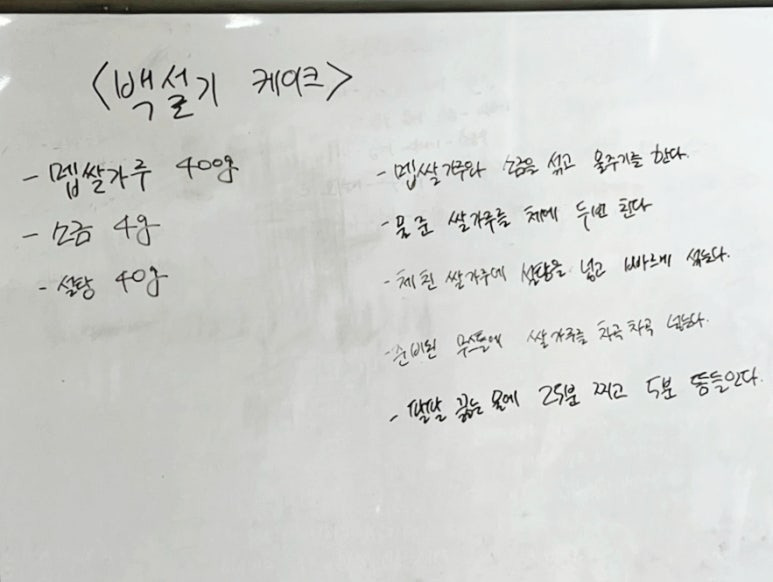 <백설기 케이크>
- 멥쌀가루 400g
- 소금 4g
- 설탕 40g
- 멥쌀가루와 소금을 섞고 물주기를 한다.
- 물 준 쌀가루를 체에 두번 친다
- 체친 쌀가루에 설탕을 넣고 빠르게 섞는다.
- 준비된 무스틀에 쌀가루를 차곡차곡 넣는다.
- 팔팔 끓는 물에 25분 찌고 5분 뜸들인다.